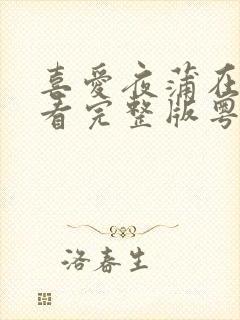 喜爱夜蒲在
看完整版粤
洛春生